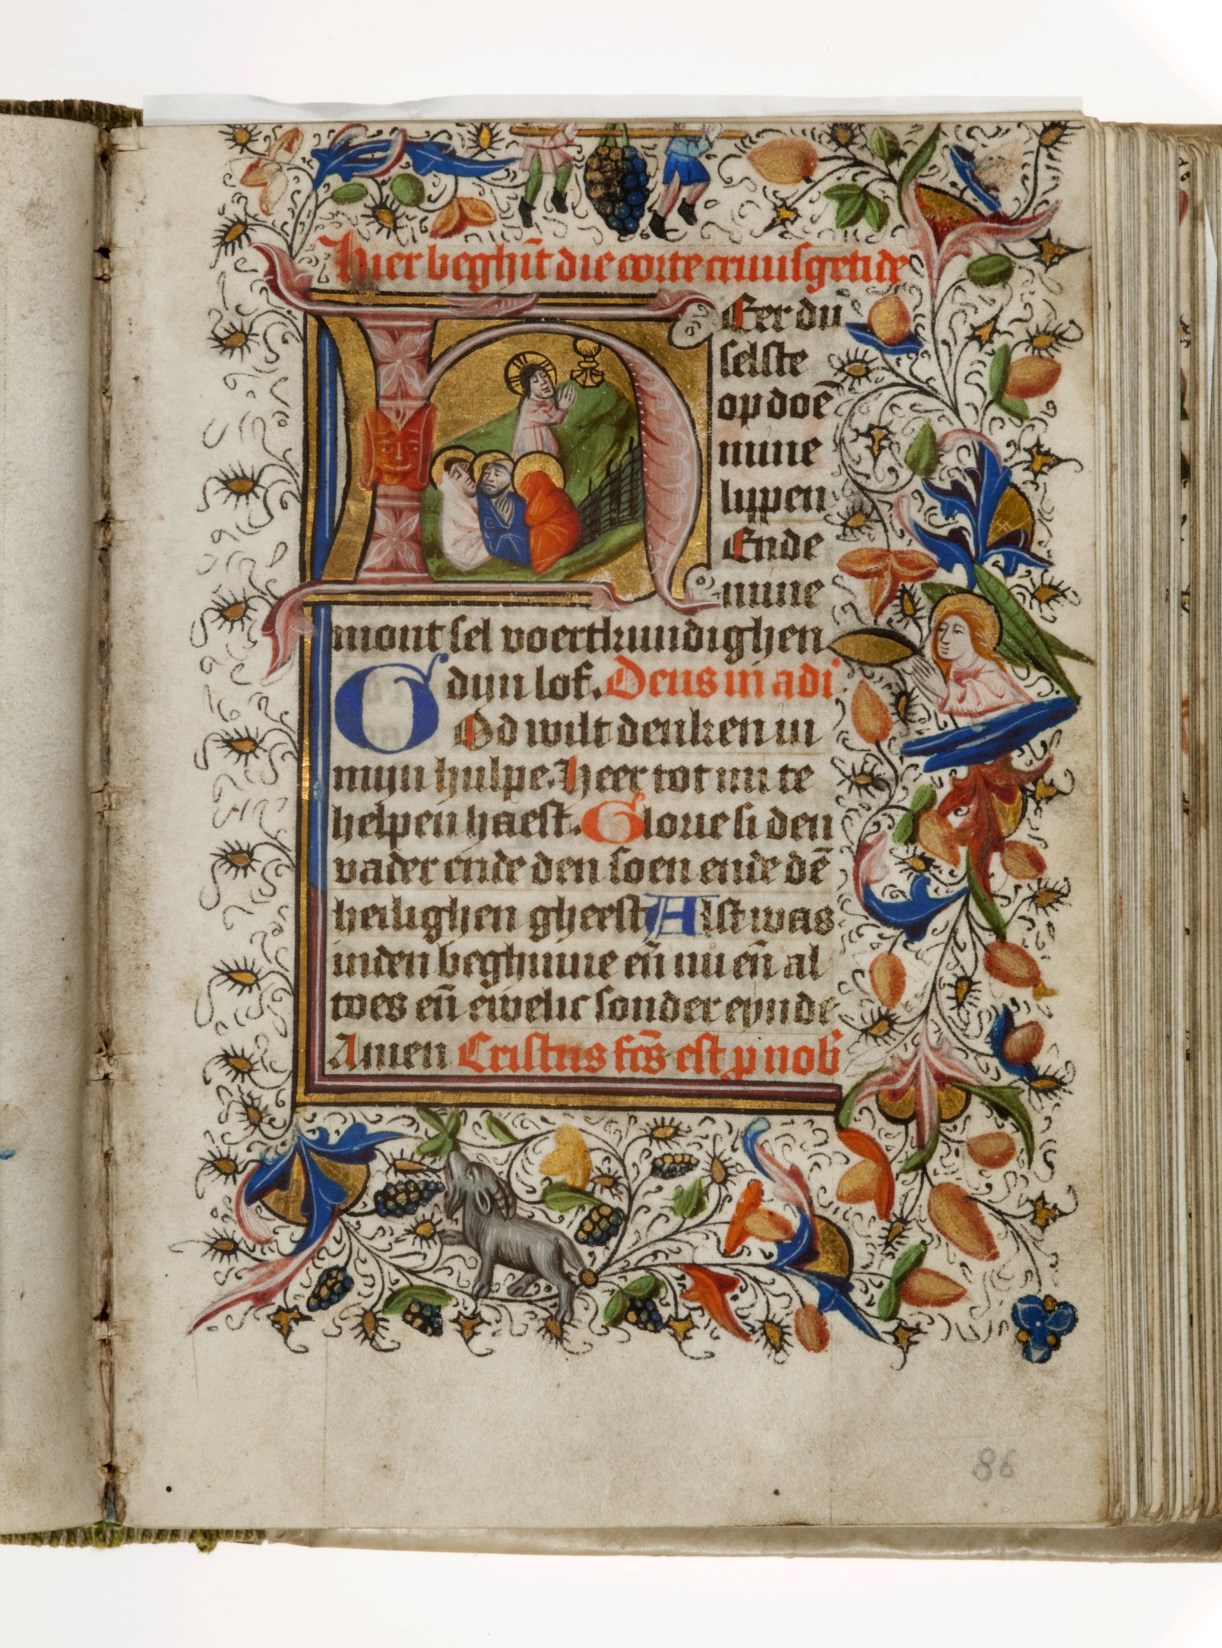 Hier beghīt die corte cruusgetide
Heer du
selste
op doē
mine
lippen
Ende
mine
mont sel voerthundighen
dijn lof. Deus in adi
God wilt denken in
mijn hulpe. Heer tot mi te
helpen haest. Glorie si den
vader ende den soen ende dē
heilighen gheest Alst was
inden beghinne eñ nu eñ al
toes eñ ewelic sonder eynde
Amen Cristus fc̄s est p nob
86